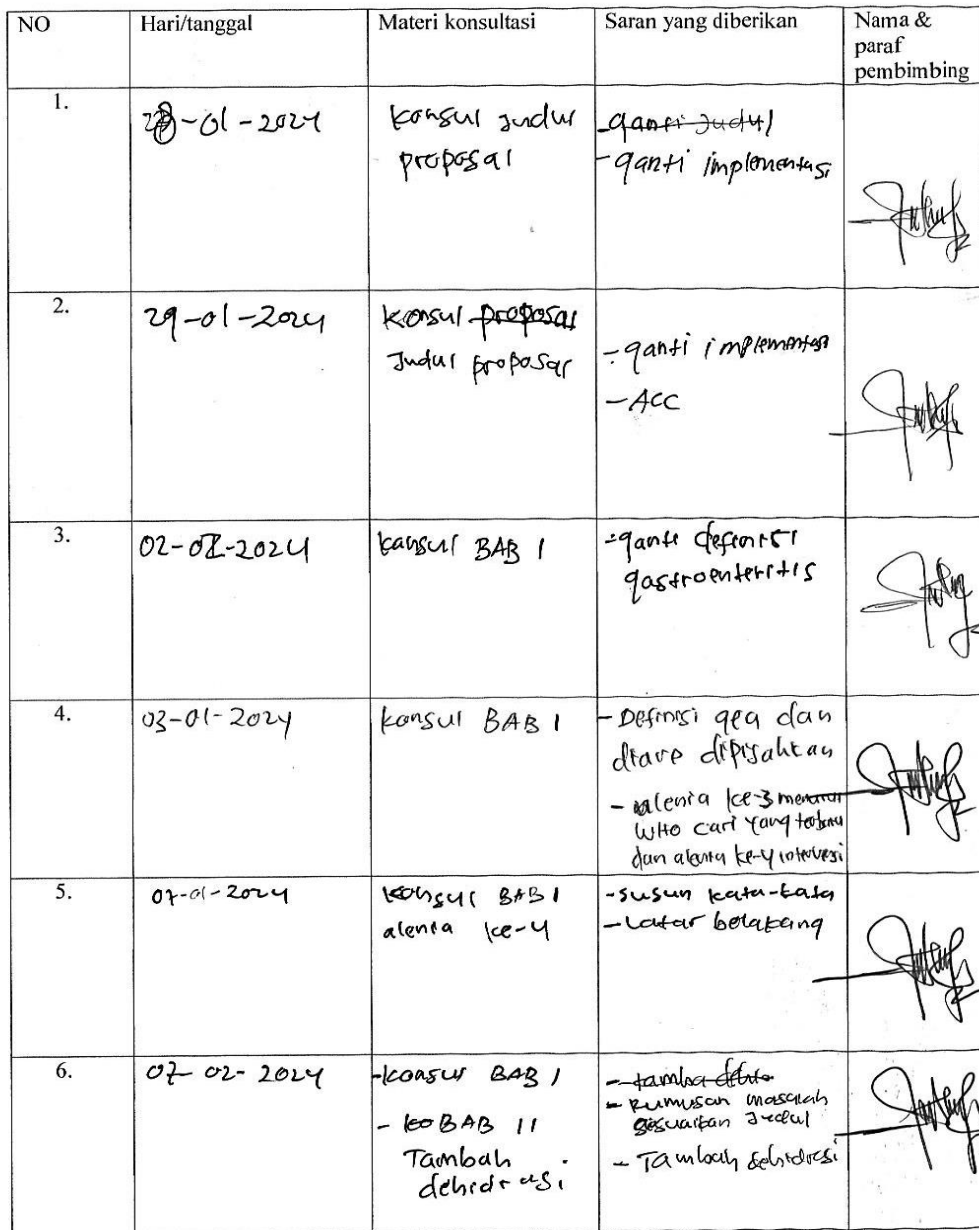 NO
Hari/tanggal
Materi konsultasi
Saran yang diberikan
Nama &
paraf
pembimbing
1.
28-01-2024
konsul judul
proposal
-ganti judul
-ganti implementasi
2.
29-01-2024
konsul proposal
Judul proposal
-ganti implementasi
-ACC
3.
02-02-2024
konsul BAB I
-ganti definisi
gastroenteritis
4.
03-01-2024
konsul BAB I
-Definisi gea dan
diare dipisahkan
-alenia ke-3 menurut
WHO cari yang terbaru
dan alenia ke-4 intervensi
5.
07-01-2024
konsul BAB I
alenia ke-4
-susun kata-kata
-Latar belakang
6.
07-02-2024
-konsul BAB I
- BAB II
Tambah
dehidrasi
-tamba
-Rumusan masalah
sesuaikan Judul
-Tambah dehidrasi